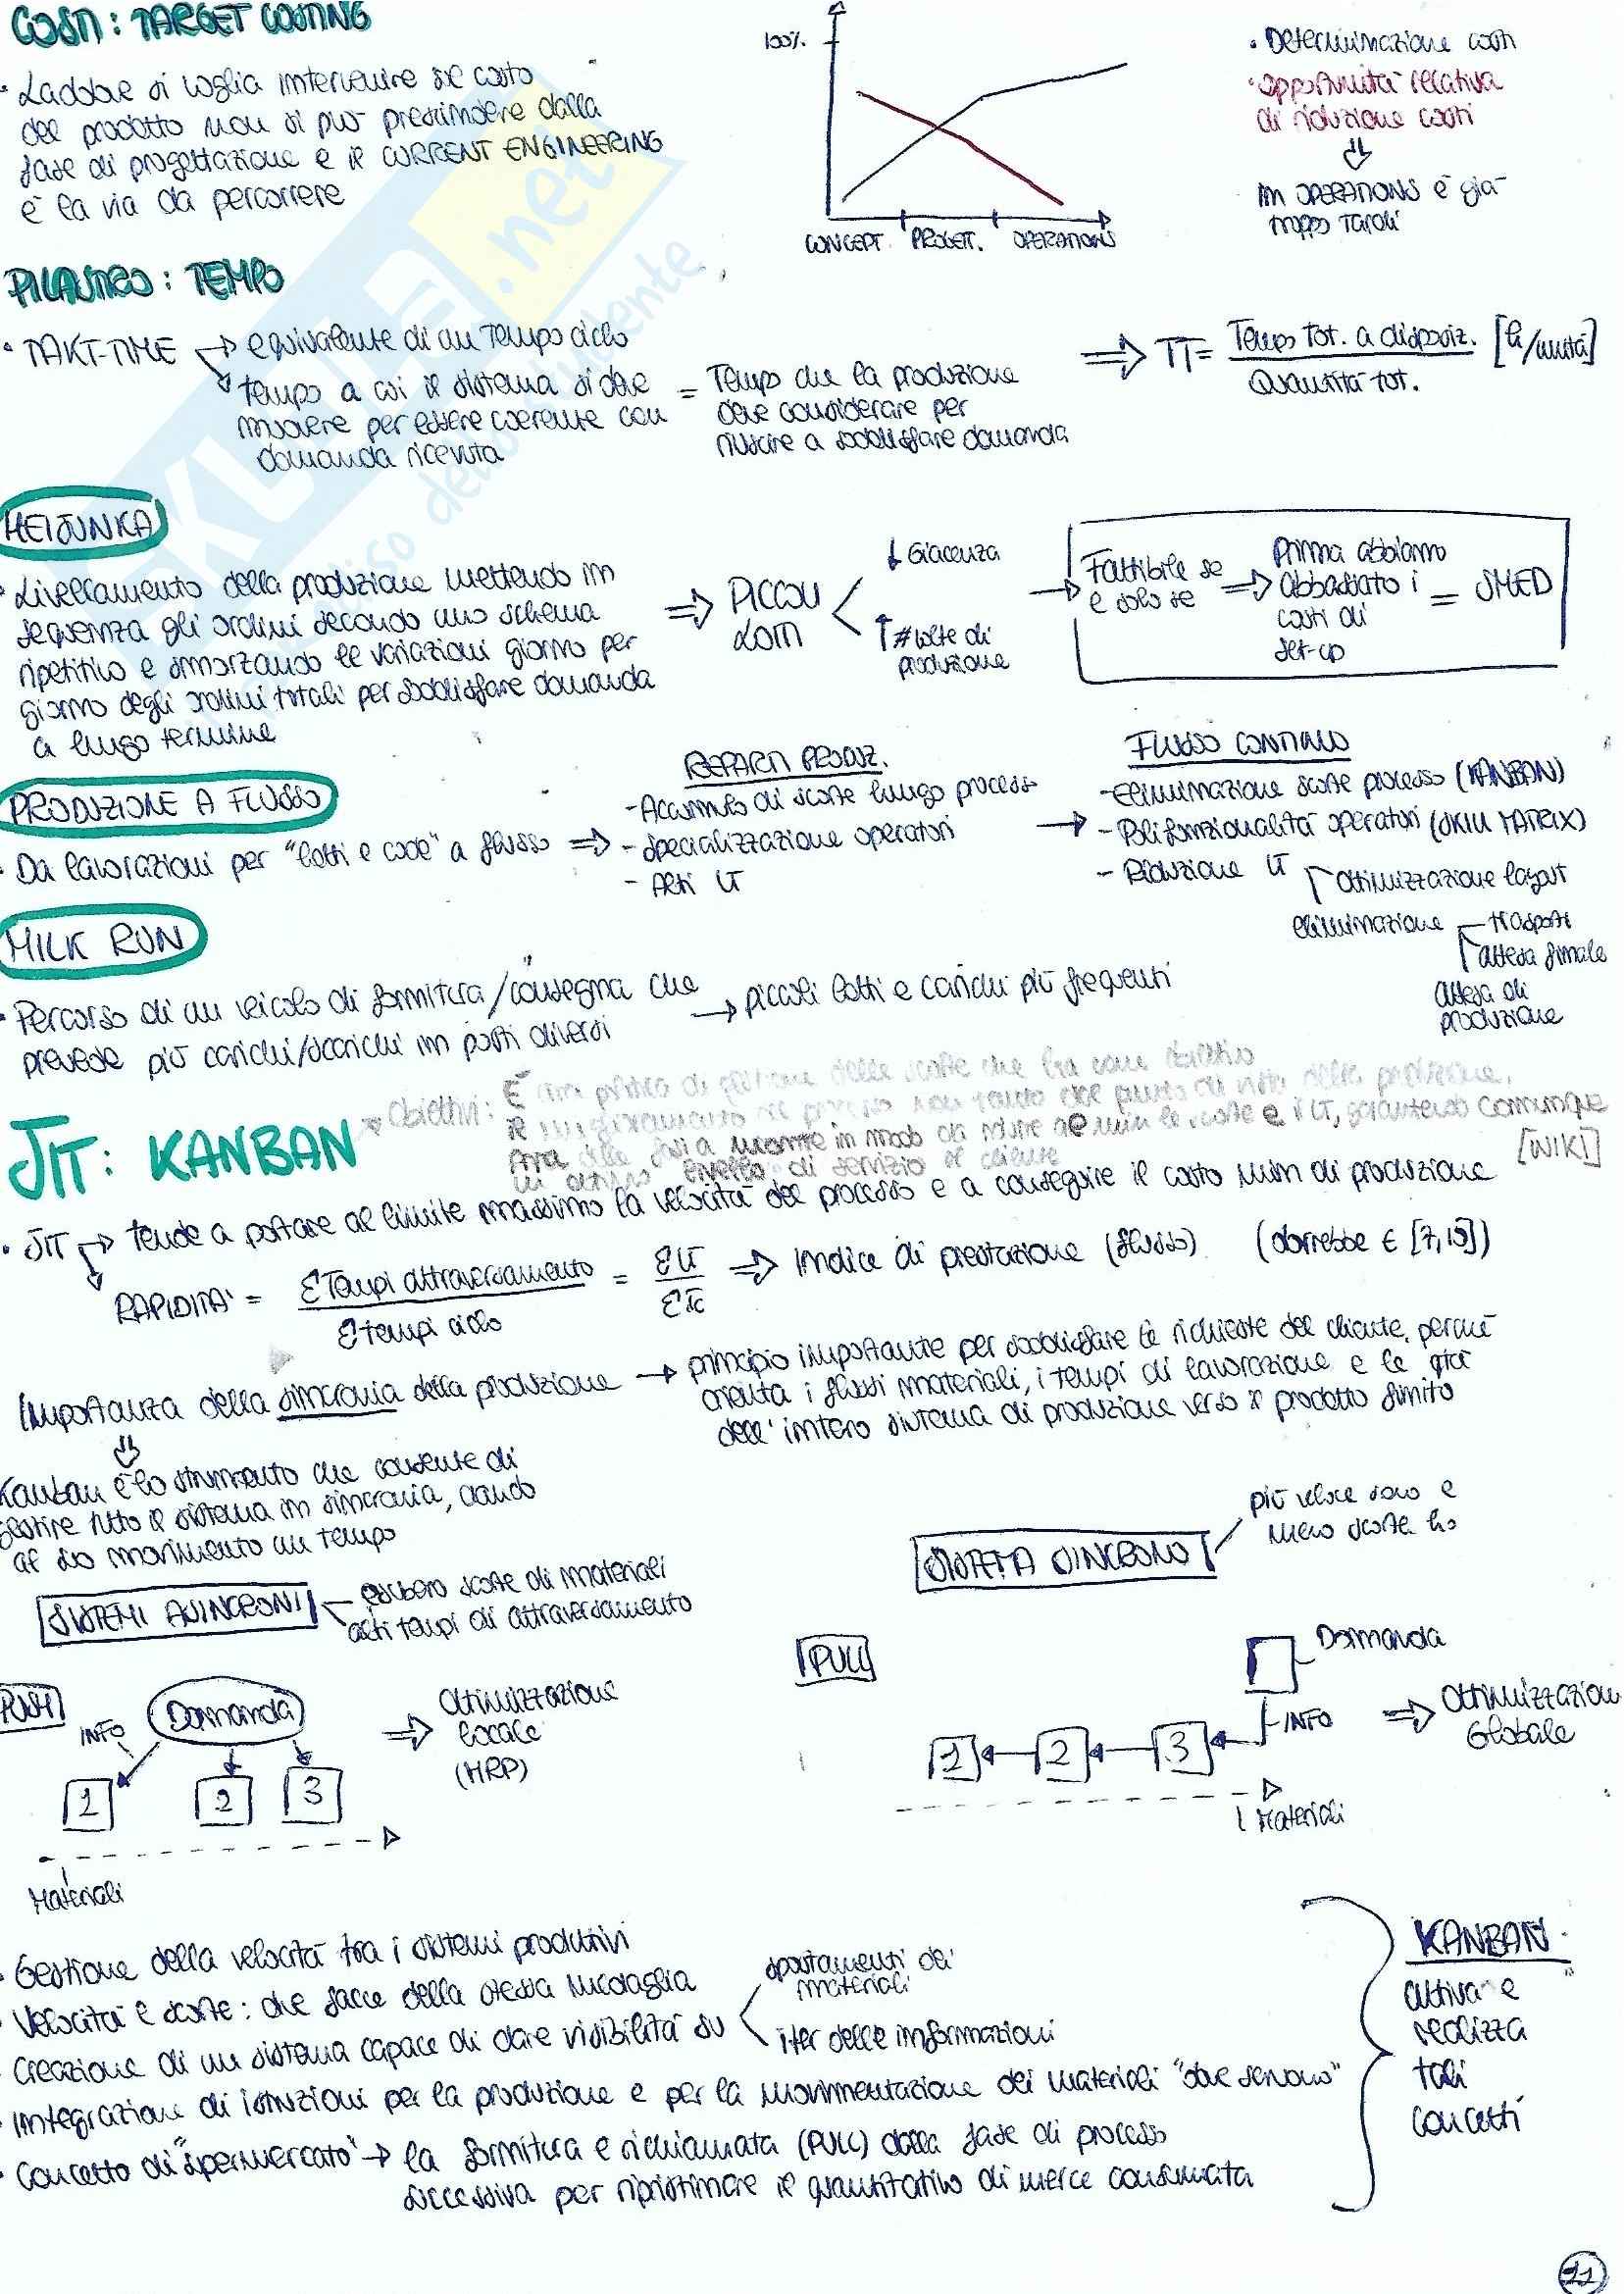 COSTI: TARGET COSTING
• Laddove si voglia intervenire sul costo
del prodotto non si può prescindere dalla
fase di progettazione e il CURRENT ENGINEERING
è la via da percorrere
100%
CONCEPT PROGET. OPERATIONS
• Determinazione costi
• opportunità relativa
di riduzione costi
in OPERATIONS è già
troppo tardi
PILASTRO: TEMPO
• TAKT-TIME → equivalente di un tempo ciclo
tempo a cui il sistema si deve
muovere per essere coerente con
domanda ricevuta
= Tempo che la produzione
deve considerare per
riuscire a soddisfare domanda
⇒ TT = Tempo tot. a disposiz. [h/unità]
Quantità tot.
HEIJUNKA
• Livellamento della produzione mettendo in
sequenza gli ordini secondo uno schema
ripetitivo e smorzando le variazioni giorno per
giorno degli ordini totali per soddisfare domanda
a lungo termine
⇒ PICCOLI
LOTTI
↓ Giacenza
↑ # volte di
produzione
→ Fattibile se
e solo se
⇒ Prima abbiamo
abbassato i
costi di
set-up
= SMED
PRODUZIONE A FLUSSO
• Da lavorazioni per "lotti e code" a flusso ⇒
REPARTI PRODUZ.
- Accumulo di scorte lungo processo
- Specializzazione operatori
- Alti LT
FLUSSO CONTINUO
→ - Eliminazione scorte processo (KANBAN)
- Polifunzionalità operatori (SKILL MATRIX)
- Riduzione LT
ottimizzazione layout
eliminazione
trasporti
attesa finale
attesa di
produzione
MILK RUN
• Percorso di un veicolo di fornitura/consegna che
prevede più carichi/scarichi in posti diversi
→ piccoli lotti e carichi più frequenti
JIT: KANBAN
→ Obiettivi: È una politica di gestione delle scorte che ha come obiettivo
il miglioramento del processo non tanto dal punto di vista della produzione,
ma delle fasi a monte in modo da ridurre al min le scorte e il LT, garantendo comunque
un ottimo livello di servizio al cliente [WIKI]
• JIT → tende a portare al limite massimo la velocità del processo e a conseguire il costo min di produzione
RAPIDITA' = ΣTempi attraversamento = ΣLT ⇒ Indice di prestazione (flusso) (dovrebbe ∈ [7,15])
Σtempi ciclo ΣTc
Importanza della sincronia della produzione → principio importante per soddisfare le richieste del cliente, perché
orienta i flussi materiali, i tempi di lavorazione e le
dell'intero sistema di produzione verso il prodotto finito
Kanban è lo strumento che consente di
gestire tutto il sistema in sincronia, dando
al suo movimento un tempo
SISTEMI ASINCRONI
scorte di materiali
alti tempi di attraversamento
SISTEMA SINCRONO
più veloce sono e
meno scorte ho
PUSH
INFO
Domanda
1 2 3
Materiali
⇒ Ottimizzazione
locale
(MRP)
PULL
Domanda
INFO
1 2 3
Materiali
⇒ Ottimizzazione
Globale
• Gestione della velocità tra i sistemi produttivi
• Velocità e scorte: due facce della stessa medaglia
• Creazione di un sistema capace di dare visibilità su
spostamenti dei
materiali
iter delle informazioni
• Integrazione di istruzioni per la produzione e per la movimentazione dei materiali "dove servono"
• Concetto di "supermercato" → la fornitura è richiamata (PULL) dalla fase di processo
successiva per ripristinare il quantitativo di merce consumata
KANBAN
attiva e
realizza
tali
concetti
11